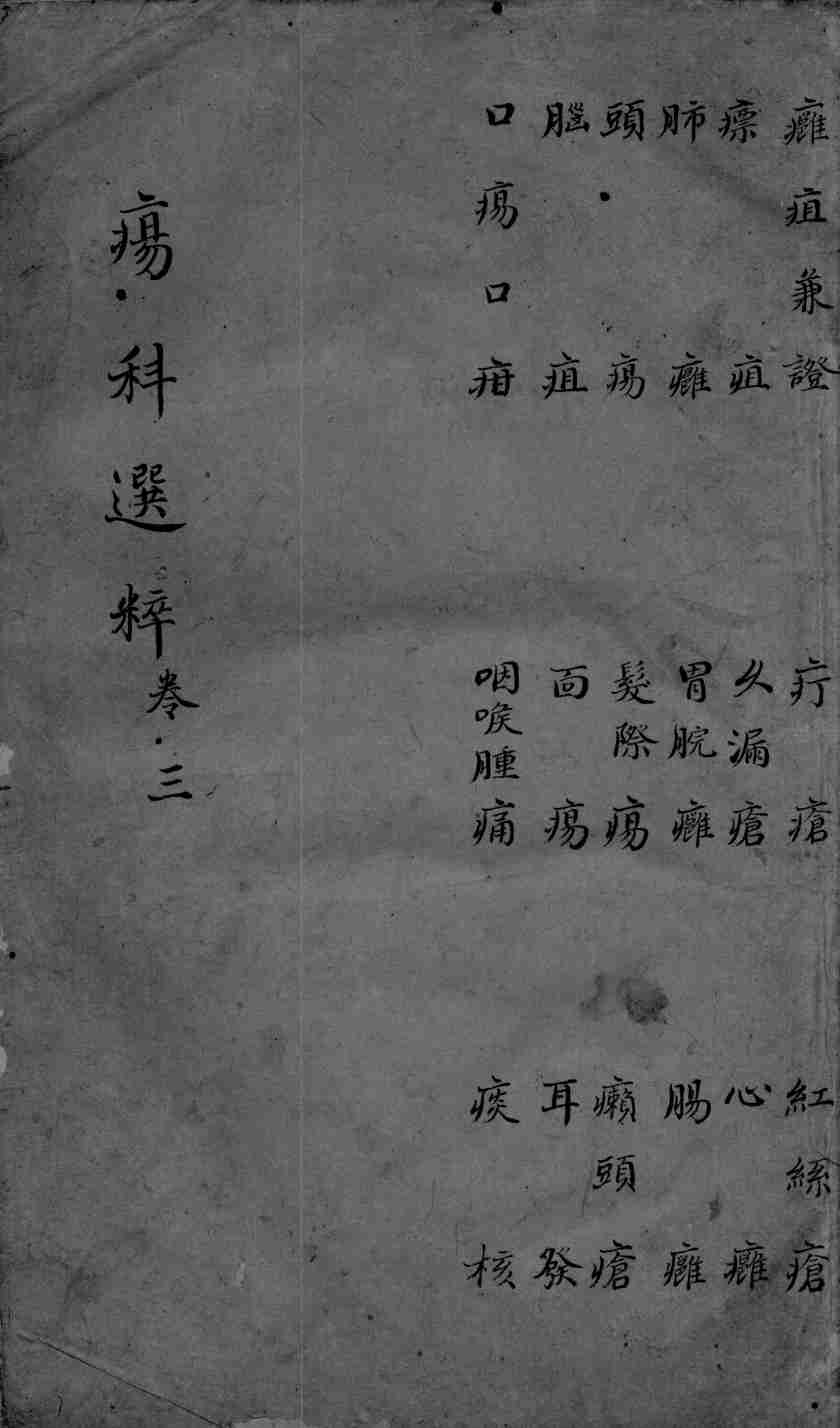 癰疽兼證　疔瘡　紅絲瘡
瘭疽　久漏瘡　心癰
肺癰　胃脘癰　腸癰
頭瘍　髮際瘍　癩頭瘡
腦疽　面瘍　耳發
口瘍口疳　咽喉腫痛　痰核
瘍科選粹卷三